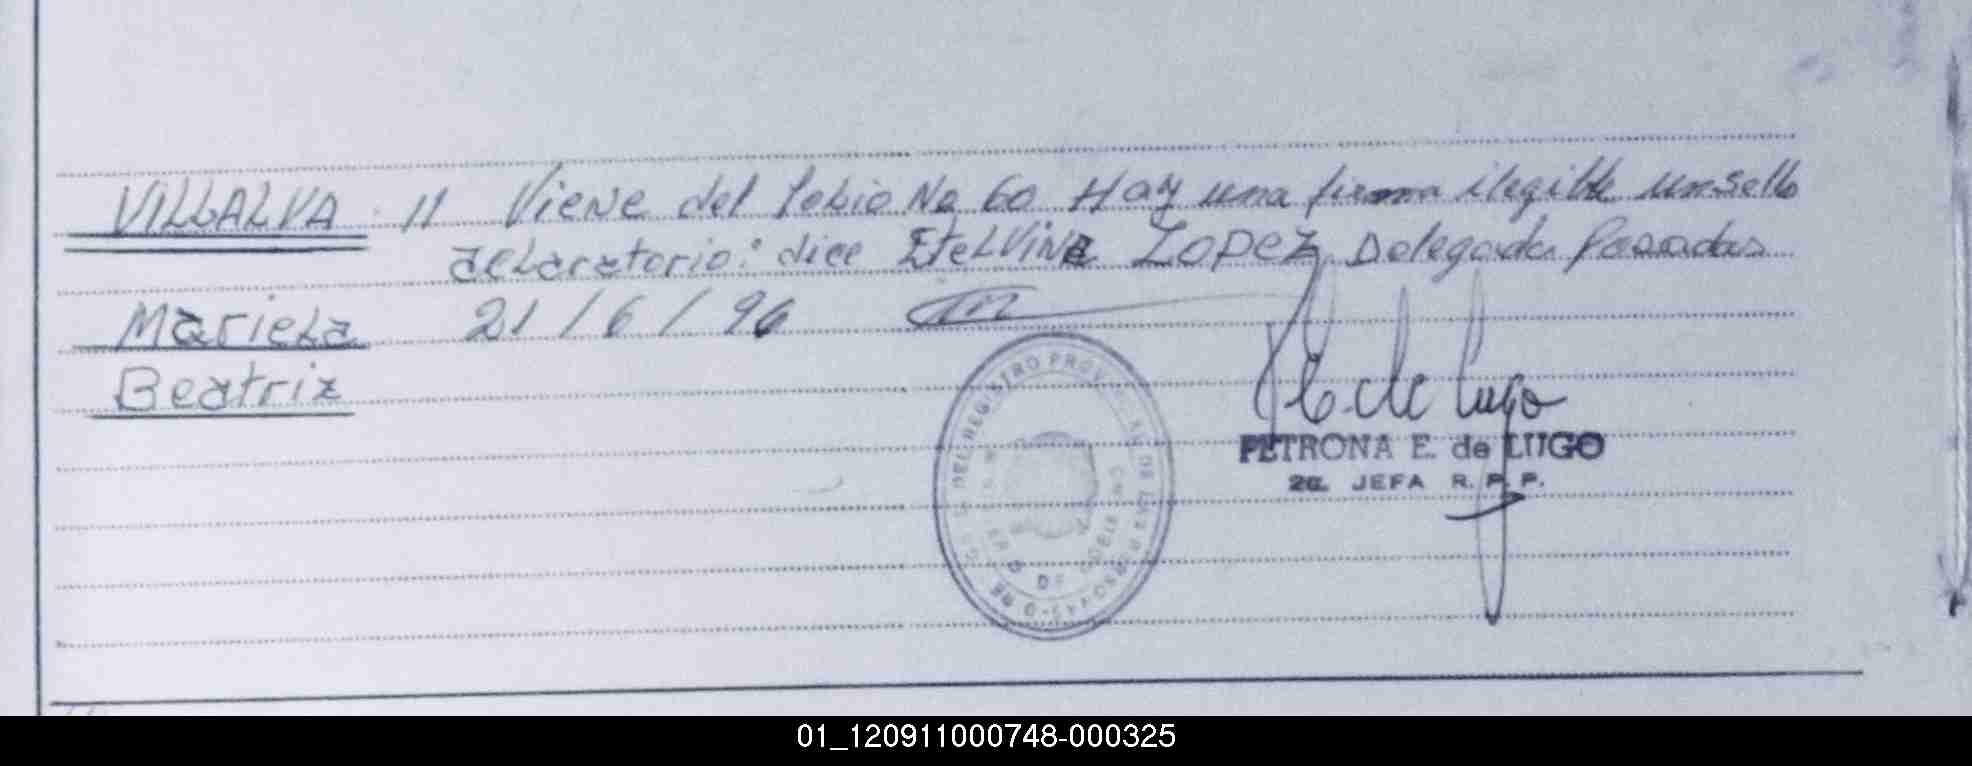 VILLALVA 11 Viene del Folio No 60 Hay una firma ilegible un sello
aclaratorio: dice Etelvina Lopez Delegada Posadas
Mariela 21/6/96
Beatriz
DEL REGISTRO PROV
P. E. de Lugo
PETRONA E. de LUGO
2a. JEFA R. P. P.
01_120911000748-000325